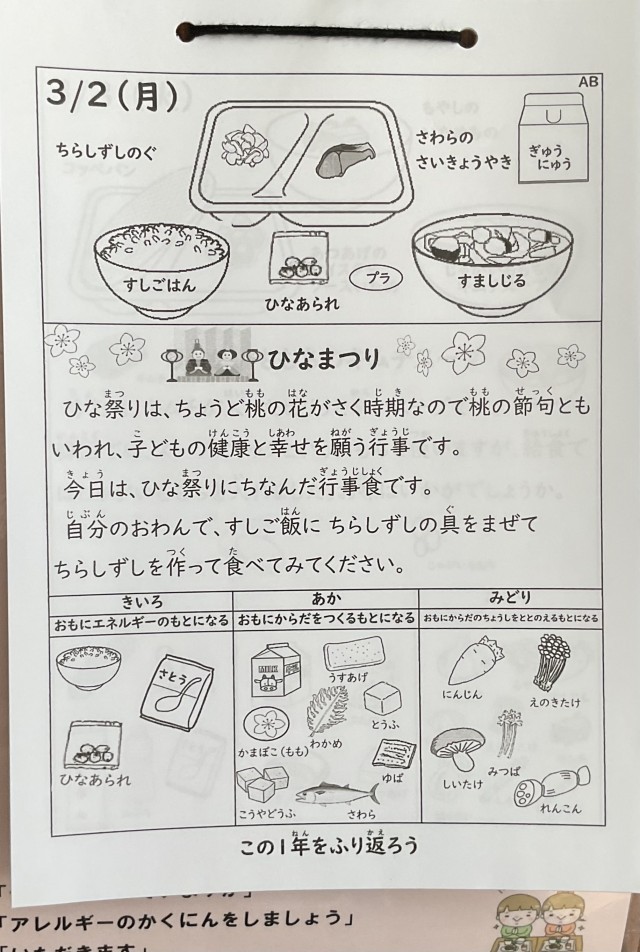 3/2(月)
AB
ちらしずしのぐ
さわらの
さいきょうやき
ぎゅう
にゅう
すしごはん
ひなあられ
プラ
すましじる
ひなまつり
ひな祭りは、ちょうど桃の花がさく時期なので桃の節句とも
いわれ、子どもの健康と幸せを願う行事です。
今日は、ひな祭りにちなんだ行事食です。
自分のおわんで、すしご飯に ちらしずしの具をまぜて
ちらしずしを作って食べてみてください。
きいろ
おもにエネルギーのもとになる
さとう
ひなあられ
あか
おもにからだをつくるもとになる
MILK
うすあげ
かまぼこ(もも)
わかめ
とうふ
ゆば
こうやどうふ
さわら
みどり
おもにからだのちょうしをととのえるもとになる
にんじん
えのきたけ
しいたけ
みつば
れんこん
この1年をふり返ろう
「アレルギーのかくにんをしましょう」
「いただきます」